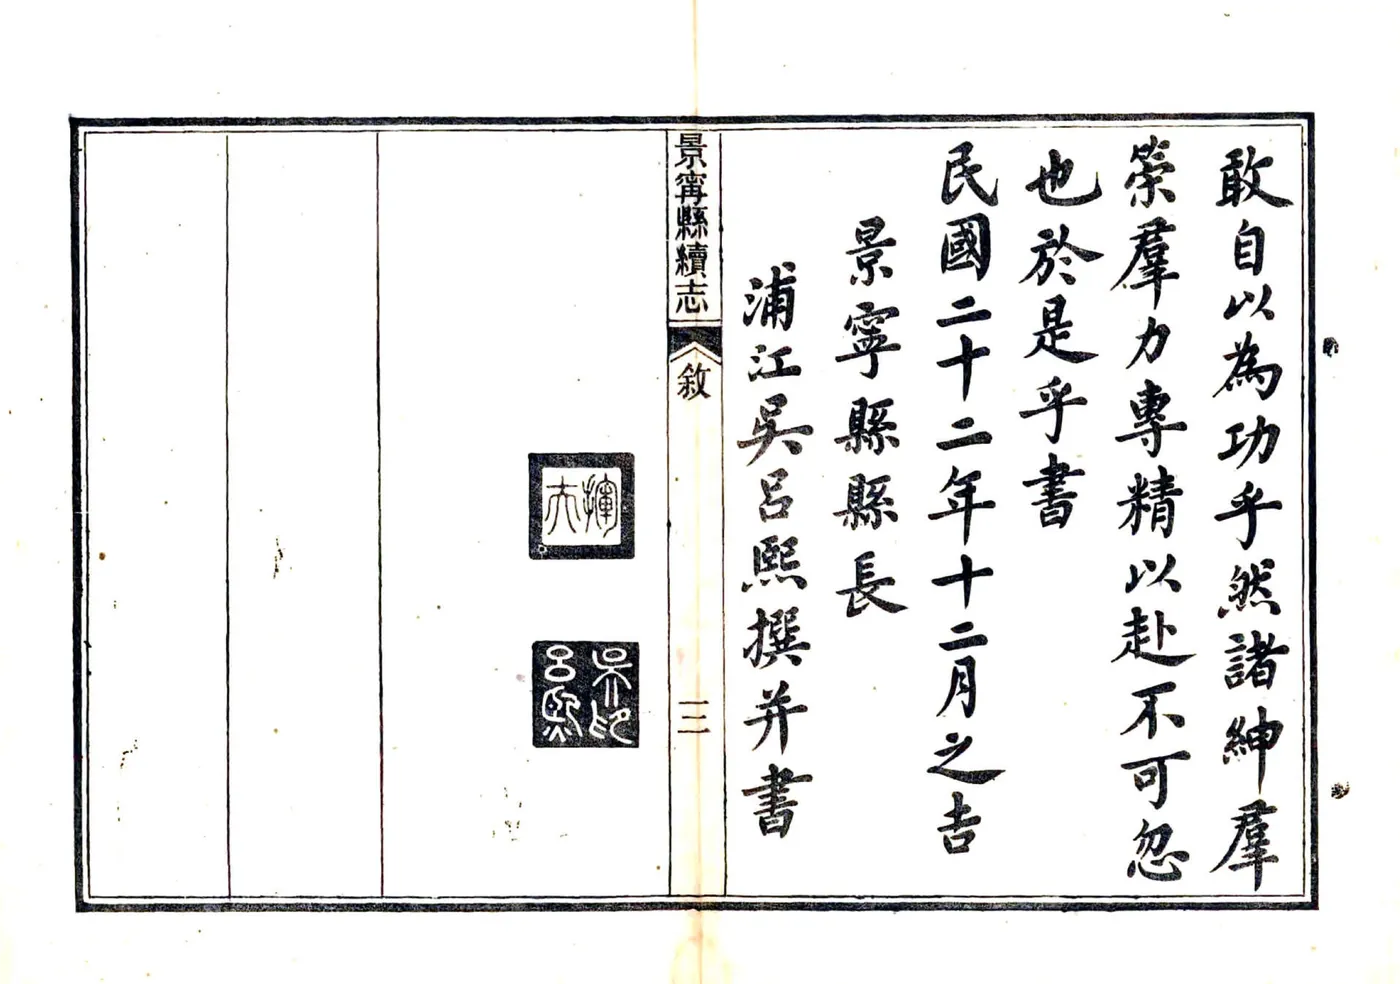 敢自以為功乎然諸紳羣
䇿羣力專精以赴不可忽
也於是乎書
民國二十二年十二月之吉
景寧縣縣長
浦江吳呂熙撰并書
景甯縣續志
敘
三
吳印
呂熙